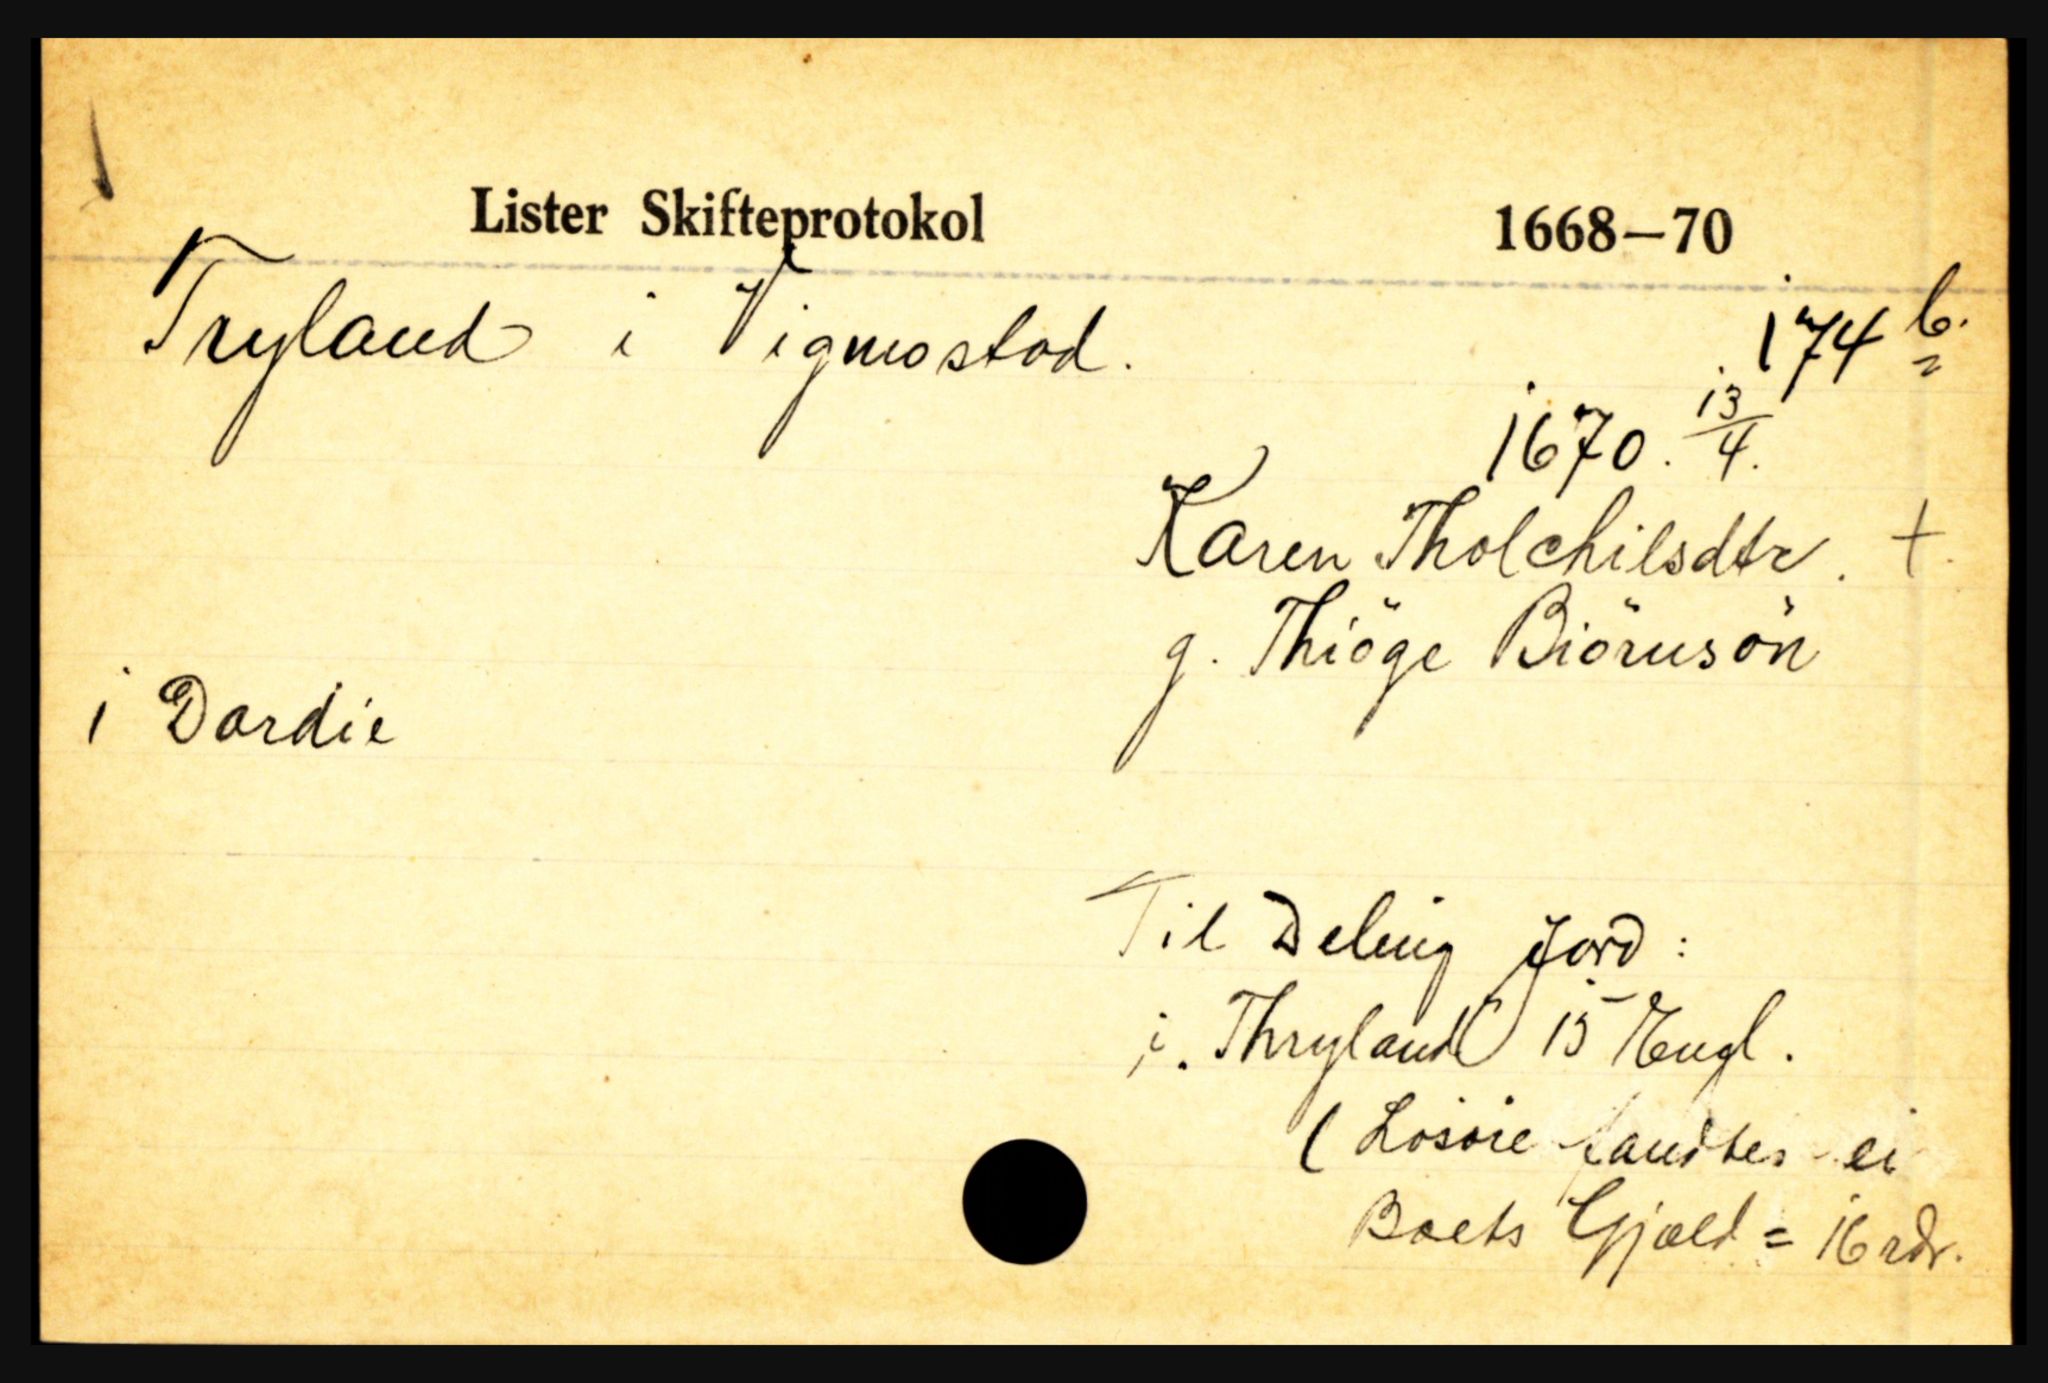 Lister Skifteprotokol 1668—70
Tryland i Vigmostad. 174 b.
1670. 13/4.
Karen Tholchilsdtr. +
g. Thiöge Biörnsön
i Dardie
Til Deling Jord:
i. Thryland 15 Engl.
( Losøre fandtes ei
Boets Gjæld = 16 rdr.